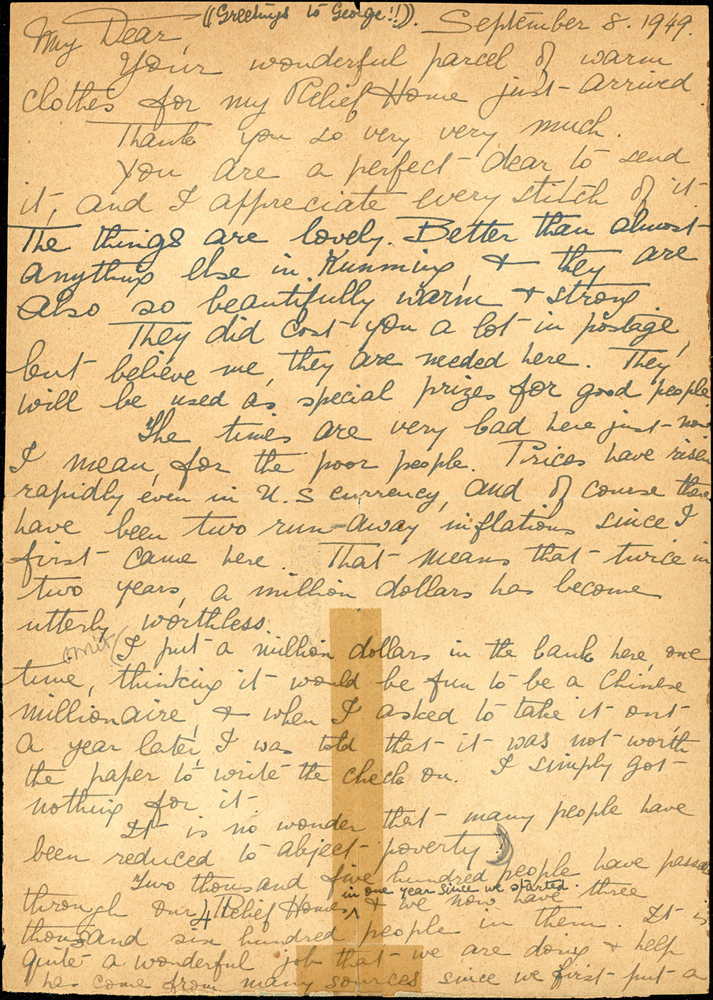 ((Greetings to George!!)). September 8. 1949.
My Dear
Your wonderful parcel of warm
clothes for my Relief Home just arrived
Thank you so very very much.
You are a perfect dear to send
it, and I appreciate every stitch of it.
The things are lovely. Better than almost
anything else in Kunming, & they are
also so beautifully warm & strong
They did cost you a lot in postage,
but believe me, they are needed here. They
will be used as special prizes for good people
The times are very bad here just now
I mean, for the poor people. Prices have risen
rapidly even in U.S currency, and of course there
have been two run-away inflations since I
first came here. That means that twice in
two years, a million dollars has become
utterly worthless.
omit (I put a million dollars in the bank here, one
time, thinking it would be fun to be a Chinese
millionaire, & when I asked to take it out
a year later I was told that it was not worth
the paper to write the check on. I simply got
nothing for it.
It is no wonder that many people have
been reduced to abject poverty!)
Two thousand five hundred people have passed
in one year since we started.
through our 4 Relief Homes & we now have three
thousand six hundred people in them. It is
quite a wonderful job that we are doing & help
has come from many sources since we first put a